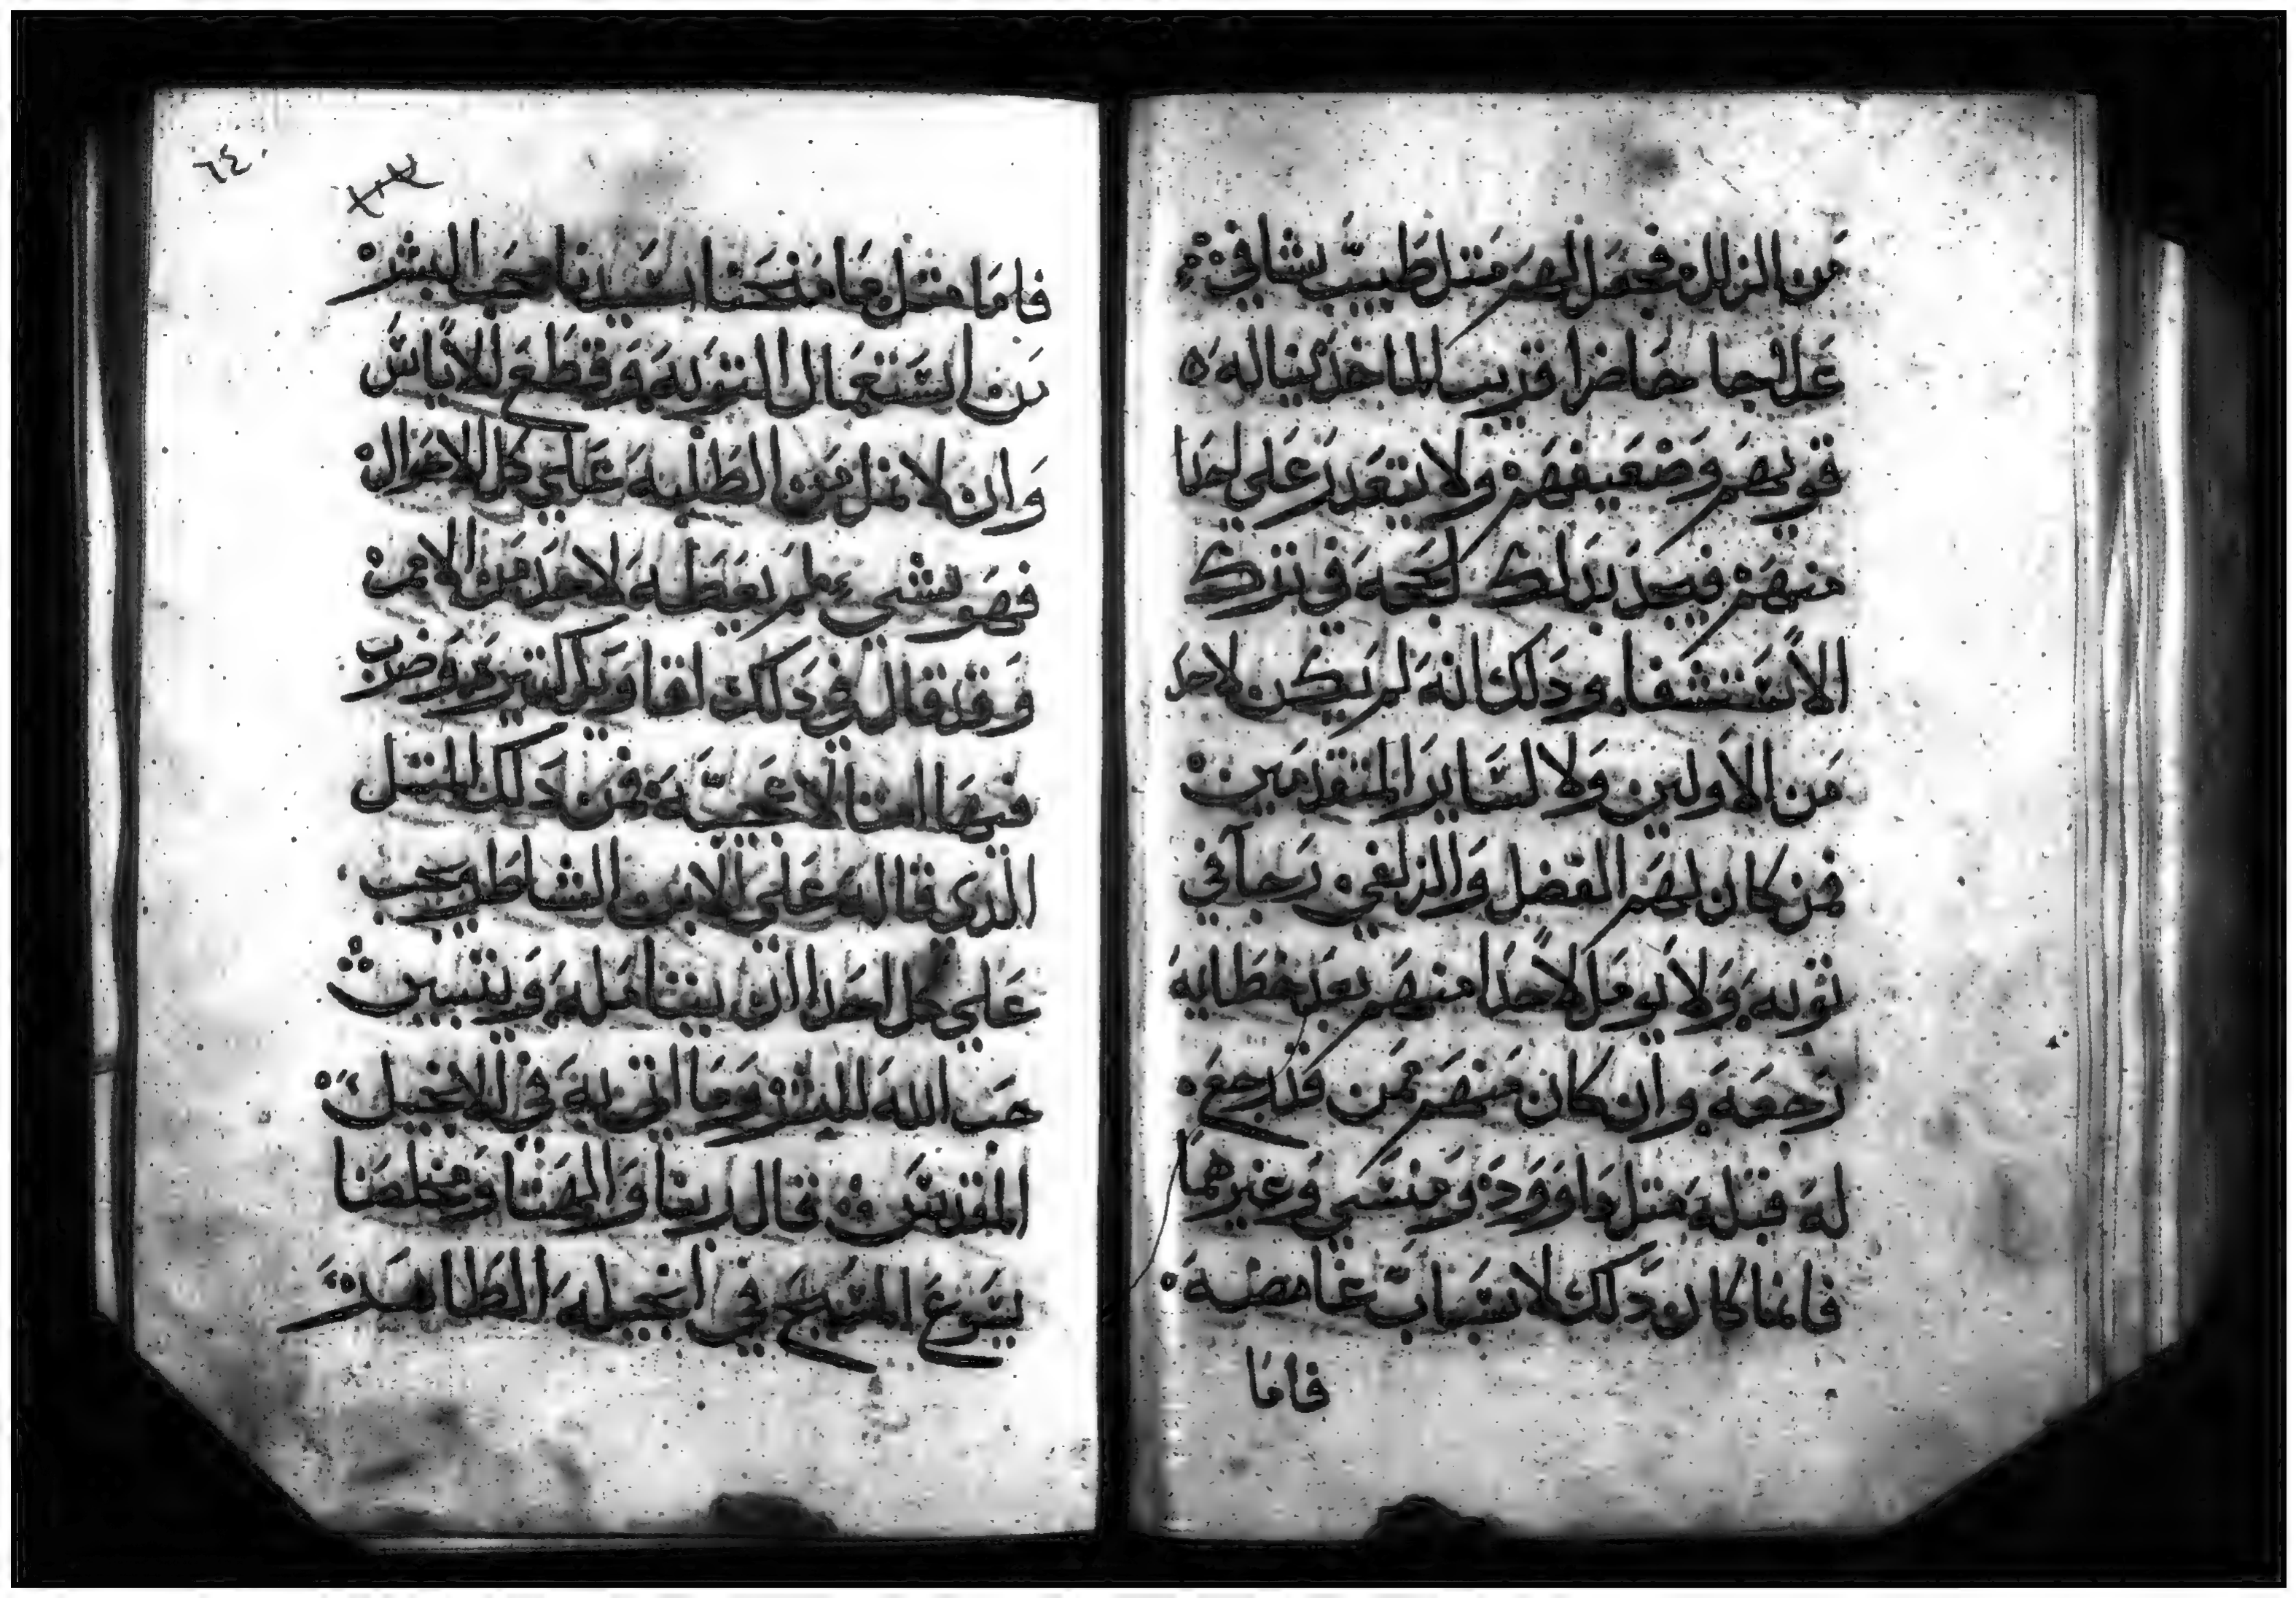 من الزلل فجعل لهم متل طبيب شافي
عل لجا حاضرا قريب الماخد يناله
قويهم وضعيفهم ولا يتعدر على احدا
منهم فيجد بدلك لحجه في ترك
الاستشفا ودلك انه لم يكن لاحد
من الاولين ولا لساير المتقدمين
فمن كان لهم الفضل والزلفي رجا في
توبه ولا يومل لاحدا منهم بعد خطايه
رجعه وان كان منهم ممن قد رجع
له قبله متل داوود ومنسي وغيرهما
فانما كان دلك لاسباب غامضه
فاما
٦٤
فاما متل ما منحنا سيدنا محب البشر
من استعمال التوبه وقطع الاياس
وان لا نمل من الطلبه على كل الاحوال
فهو شيء لم يعطه لاحد من الامم
وقد قال في دلك اقاويل كتيره وضرب
فيها امتالا عجيبه فمن دلك المتل
الدي قاله على الابن الشاطر يجب
على كل احدا ان يتامله ويتبين
حب الله للبشر وما اتى به في الانجيل
المقدس قال ربنا والهنا ومخلصنا
يسوع المسيح في انجيله الطاهر